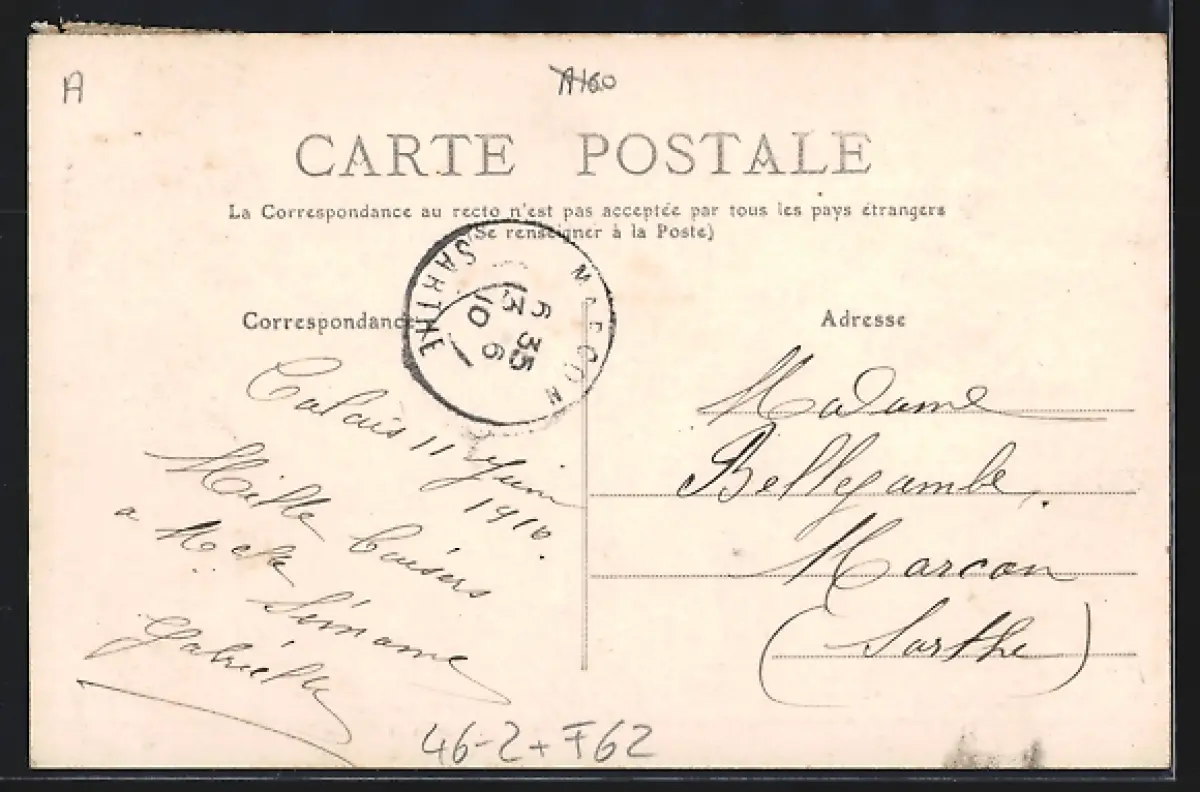 A
A160
CARTE POSTALE
La Correspondance au recto n'est pas acceptée par tous les pays étrangers
(Se renseigner à la Poste)
Correspondance
Adresse
MARCON
6 35
13 6
10
SARTHE
Calais 11 Juin
1910.
Mille baisers
a
Gabrielle
Madame
Bellegambe.
Marcon
(Sarthe)
46-2+F62